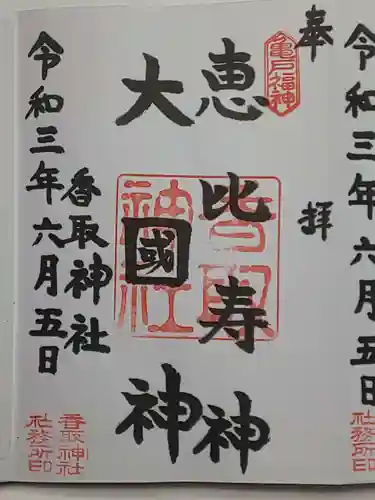 令和三年六月五日
奉拝
亀戸福神
恵比寿神
大國神
香取神社
香取神社
令和三年六月五日
香取神社
社務所印
社務所印